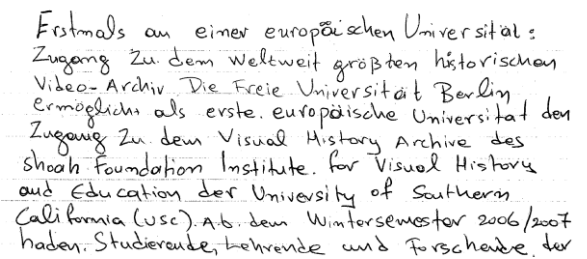 Erstmals an einer europäischen Universität:
Zugang zu dem weltweit größten historischen
Video-Archiv Die Freie Universität Berlin
ermöglicht als erste europäische Universitat den
Zugang zu dem Visual History Archive des
shoah Foundation Institute for Visual History
and Education der University of Southern
California (USC). Ab dem Wintersemester 2006/2007
haben Studierende, Lehrende und Forschende der